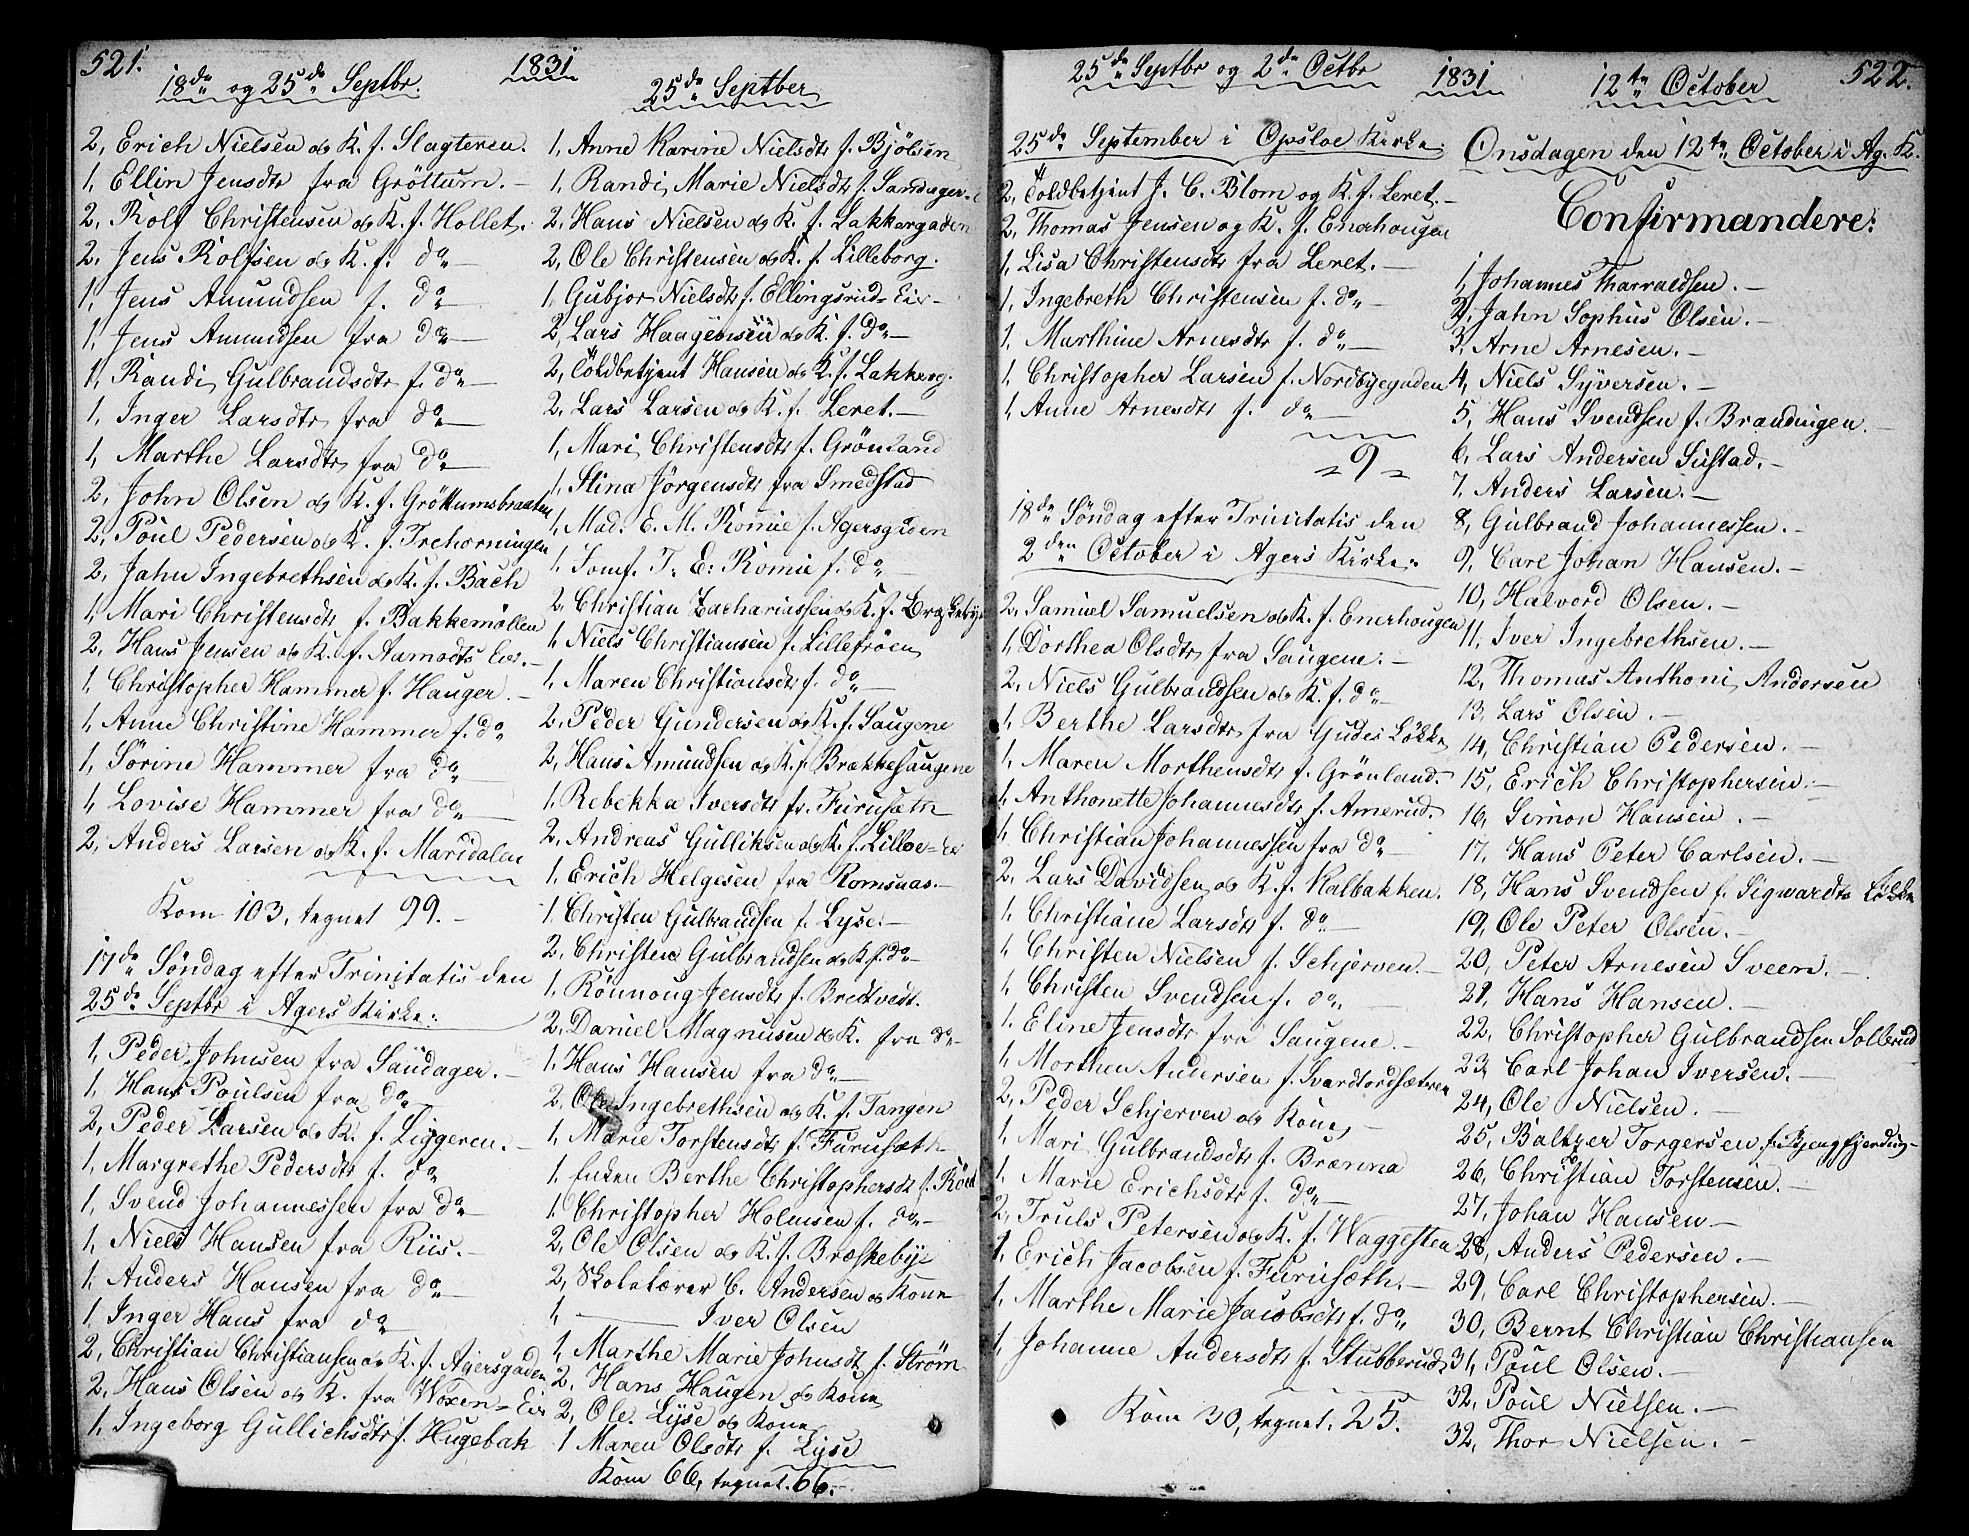 521.
18de og 25de Septbr.
1831
2, Erich Nielsen og K. f. Slagteren.
1, Ellin Jensdtr fra Gröttum. –
2, Rolf Christensen og K. f. Hollet.
2, Jens Rolfsen og K. f. do –
1, Jens Amundsen f. do –
1, Jens Amundsen fra do –
1, Randi Gulbrandsdtr f. do –
1, Inger Larsdtr fra do –
1, Marthe Larsdtr fra do –
2, John Olsen og K. f. Gröttumsbraaten
2, Poul Pedersen og K. f. Trehörningen
2, Jahn Ingebrethsen og K. f. Bach
1, Mari Christensdtr f. Bakkemöllen
2, Hans Jensen og K. f. Aamodts Eie. –
1, Christopher Hammer f. Hauger. –
1, Anne Christine Hammer f. do
1, Sörine Hammer fra do –
1, Lovise Hammer fra do –
2, Anders Larsen og K. f. Maridalen
Kom 103, tegnet 99. –
17de Söndag efter Trinitatis den
25de Septbr i Agers Kirke:
1, Peder Johnsen fra Sandager. –
1, Hans Poulsen fra do
2, Peder Larsen og K. f. Liggeren. –
1, Margrethe Pedersdtr f. do
1, Svend Johannessen fra do –
1, Niels Hansen fra Riis. –
1, Anders Hansen fra do –
1, Inger Hans fra do
2, Christian Christiansen og K. f. Agersgaden
2, Hans Olsen og K. fra Voxen-Eie
1, Ingeborg Gullichsdtr f. Hugebak
25de Septber
1, Anne Karine Nielsdtr f. Bjölsen
1, Randi Marie Nielsdtr f. Sandager-
2, Hans Nielsen og K. f. Lakkergaden
2, Ole Christensen og K. f. Lilleborg.
1, Gubjor Nielsdtr f. Ellingsrud-Eie-
2, Lars Haagensen og K. f. do –
2, Toldbetjent Hansen og K. f. Lakkerg.
2, Lars Larsen og K. f. Leret. –
1, Mari Christensdtr f. Grönland
1, Stina Jörgensdtr fra Smedstad
1, Mad. E. M. Romie f. Agersgaden
1, Jomf. T. E: Romie f. do
2, Christian Zachariassen og K. f.
1, Niels Christiansen f. Lillefröen
1, Maren Christiansdtr f. do –
2, Peder Gundersen og K. f. Saugene
2, Hans Amundsen og K. f. Brækkesaugene
1, Rebekka Iversdtr fr. Furuseth
2, Andreas Gulliksen og K. f. Lilloe-Ei
1, Erich Helgesen fra Romsaas. –
1, Christen Gulbrandsen f. Lyse. –
2, Christen Gulbrandsen og K f. do –
1, Rönnoug Jensdtr f. Bredtvedt.
2, Daniel Magnusen og K. fra do –
1, Hans Hansen fra do –
2, Ole Ingebrethsen og K. f. Tangen
1, Marie Torstensdtr f. Furuseth
1, Enken Berthe Christophersdtr f.
1, Christopher Holmsen f. do –
2, Ole Olsen og K. f. Bræskebye
2, Skolelærer C. Andersen og Kone
1, — Iver Olsen
1, Marthe Marie Johnsdtr f. Ström
2, Hans Haugen og Kone
2, Ole Lyse og Kone
1 Maren Olsdtr f. Lyse
Kom 66, tegnet. 66. –
25de Septbr og 2de Octbr
1831
25de September i Opsloe Kirke.
2, Toldbetjent J. C. Blom og K. f. Leret. –
2, Thomas Jensen og K. f. Enerhougen
1, Lisa Christensdtr fra Leret. –
1, Ingebreth Christensen f. do –
1, Marthine Arnesdtr f. do –
1, Christopher Larsen f. Nordbyegaden
1, Anne Arnesdtr f. do
= 9 =
18de Söndag efter Trinitatis den
2den October i Agers Kirke.
2, Samuel Samuelsen og K. f. Enerhougen
1, Dorthea Olsdtr fra Saugene. –
2, Niels Gulbrandsen og K. f. do –
1, Berthe Larsdtr fra Gudes Lökke
1, Maren Morthensdtr f. Grönland.
1, Anthonette Johannesdtr f. Amerud.
1, Christian Johannessen fra do –
2, Lars Davidsen og K. f. Kalbakken.
1, Christiane Larsdtr f. do –
1, Christen Nielsen f. Schjerven. –
1, Christen Svendsen f. do
1, Eline Jensdtr fra Saugene. –
1, Morthen Andersen f. Svardtordsætren
2, Peder Schjerven og Kone –
1, Mari Gulbrandsdtr f. Brænna
1, Marie Erichsdtr f. do –
2, Truls Petersen og K. f. Waggesteen
1, Erich Jacobsen f. Furuseth. –
1, Marthe Marie Jacobsdtr f. do
1, Johanne Andersdtr f. Stubberud
Kom 30, tegnet. 25.
12te October
522.
Onsdagen den 12te October i Ag. K.
Confirmandere:
1, Johannes Tharraldsen. –
2, Jahn Sophus Olsen. –
3, Arne Arnesen. –
4, Niels Syversen. –
5, Hans Svendsen f. Brandingen. –
6, Lars Andersen Sustad. –
7, Anders Larsen. –
8, Gulbrand Johannessen. –
9, Carl Johan Hansen. –
10, Halvord Olsen. –
11, Iver Ingebrethsen. –
12, Thomas Anthoni Andersen
13, Lars Olsen. –
14, Christian Pedersen. –
15, Erich Christophersen. –
16, Simon Hansen. –
17, Hans Peter Carlsen. –
18, Hans Svendsen f. Sigwardts Lökke
19, Ole Peter Olsen. –
20, Peter Arnesen Sveen. –
21, Hans Hansen. –
22, Christopher Gulbrandsen Sollerud
23, Carl Johan Iversen. –
24, Ole Nielsen. –
25, Baltzer Torgersen,
26, Christian Torstensen. –
27, Johan Hansen –
28, Anders Pedersen. –
29, Carl Christophersen. –
30, Bernt Christian Christiansen
31, Poul Olsen. –
32, Poul Nielsen. –
32, Thor Nielsen. –